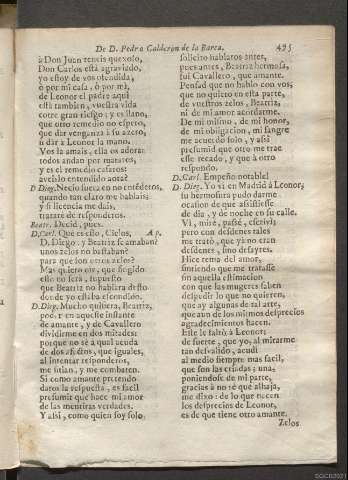 De D. Pedro Calderon de la Barca. 495
à Don Juan teneis quexoso,
Don Carlos està agraviado,
yo estoy de vos ofendida,
ò por mi casa, ò por mi,
de Leonor el padre aqui
està tambien, vuestra vida
corre gran riesgo: y es llano,
que otro remedio no espero,
que dar vengança à su azero,
ò dàr à Leonor la mano.
Vos la amais, ella os adora:
todos andan por mataros,
y es el remedio casaros:
aveislo entendido aora?
D. Dieg. Necio fuera en no entẽderos,
quando tan claro me hablais;
y si licencia me dais,
tratarè de responderos.
Beatr. Decid, pues.
D. Carl. Què es esto, Cielos, Ap.
D. Diego, y Beatriz se amaban?
unos zelos no bastaban?
para què son otros zelos?
Mas quiero oir, que fingido
esto no serà, supuesto
que Beatriz no hablàra desto
donde yo estaba escondido.
D. Dieg. Mucho quisiera, Beatriz,
poder en aqueste instante
de amante, y de Cavallero
dividirme en dos mitades:
porque no sè à qual acuda
de dos afectos, que iguales,
al intentar responderos,
me sitian, y me combaten.
Si como amante pretendo
daros la respuesta, es facil
presumir que hace mi amor
de las mentiras verdades.
Y assi, como quien soy solo
solicito hablaros antes,
pues antes, Beatriz hermosa,
fui Cavallero, que amante.
Pensad que no hablo con vos,
que no quiero en esta parte,
de vuestros zelos, Beatriz,
ni de mi amor acordarme.
De mi mismo, de mi honor,
de mi obligacion, mi sangre
me acuerdo solo, y assi
presumid que otro me trae
esse recado, y que à otro
respondo.
D. Carl. Empeño notable!
D. Dieg. Yo vi en Madrid à Leonor;
su hermosura pudo darme
ocasion de que assistiesse
de dia, y de noche en su calle.
Vi, mirè, passè, escrivì;
pero con desdenes tales
me tratò, que yà no eran
desdenes, sino desayres.
Hice tema del amor,
sintiendo que me tratasse
sin aquella estimacion
con que las mugeres saben
despedir lo que no quieren,
que ay algunas de tal arte,
que aun de los mismos desprecios
agradecimientos hacen.
Este le faltò à Leonor;
de suerte, que yo, al mirarme
tan desvalido, acudì
al medio siempre mas facil,
que son las criadas; una,
poniendose de mi parte,
gracias à no sè què alhaja,
me dixo: de lo que nacen
los desprecios de Leonor,
es de que tiene otro amante.
Zelos